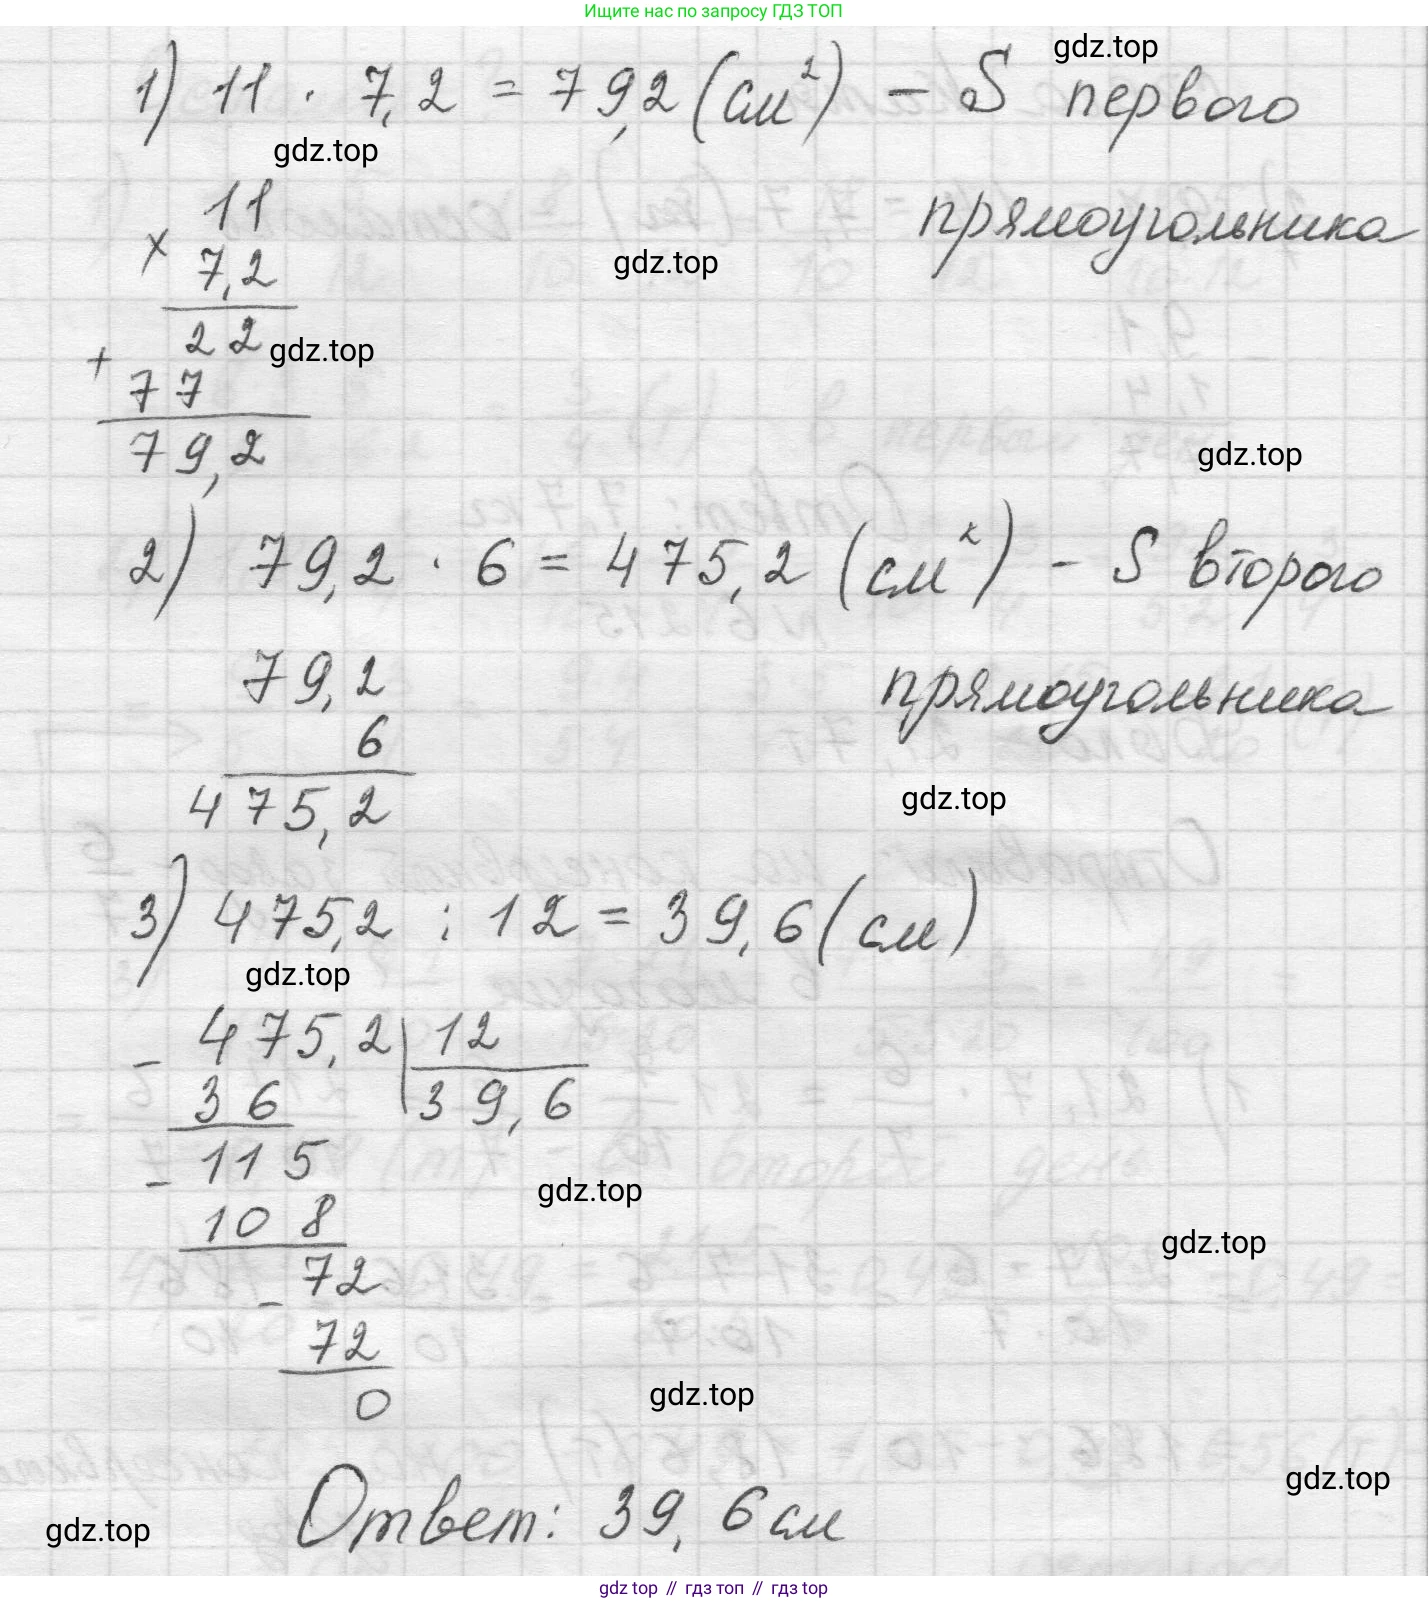 Ищите нас по запросу ГДЗ ТОП
gdz.top
1) 11 · 7,2 = 79,2 (см²) – S первого
gdz.top
прямоугольника
11
×
7,2
gdz.top
22
gdz.top
+
77
79,2
gdz.top
2) 79,2 · 6 = 475,2 (см²) – S второго
прямоугольника
79,2
6
475,2
gdz.top
3) 475,2 : 12 = 39,6 (см)
gdz.top
– 475,2 | 12
36 39,6
– 115
gdz.top
108
gdz.top
– 72
72
gdz.top
0
gdz.top
Ответ: 39,6 см
gdz.top
gdz top // гдз топ // gdz top